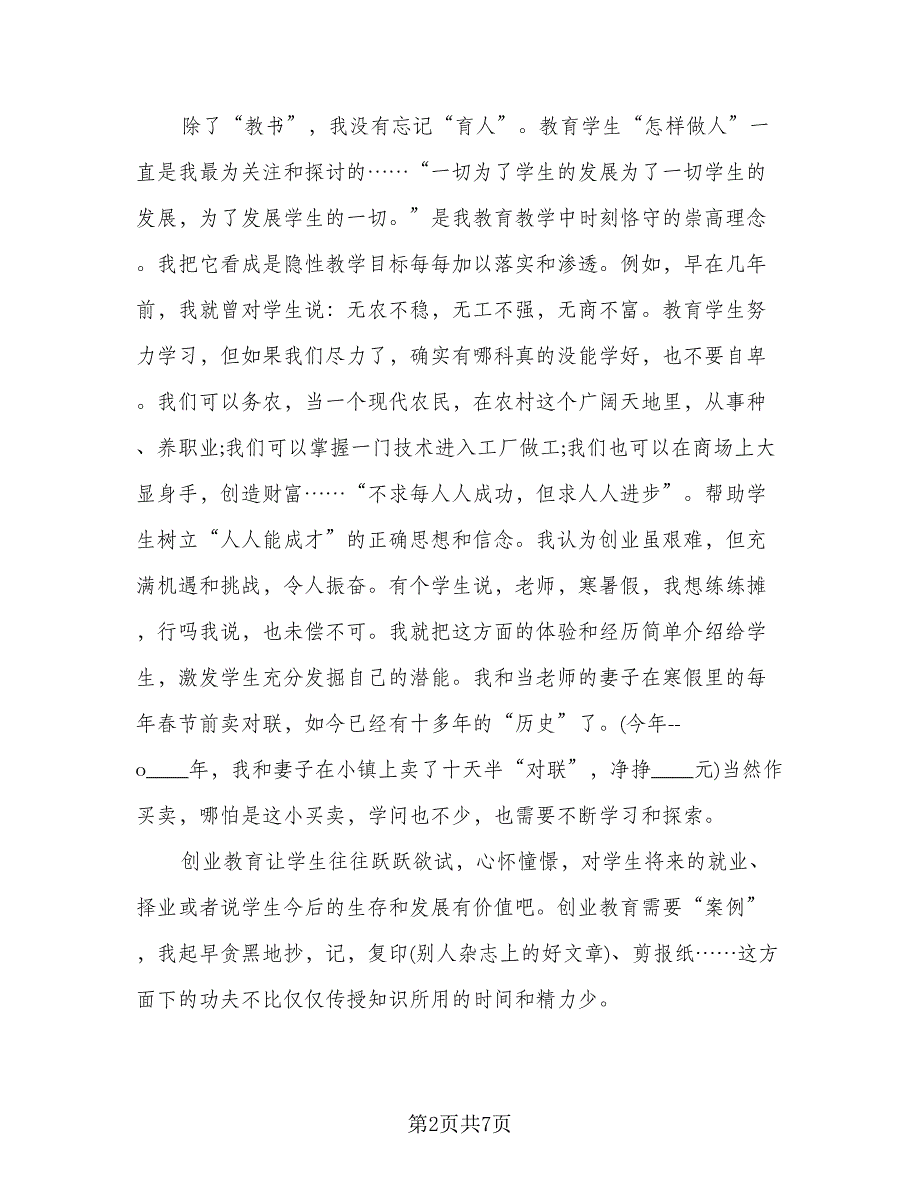 除了“教书”，我没有忘记“育人”。教育学生“怎样做人”一
直是我最为关注和探讨的……“一切为了学生的发展为了一切学生的
发展，为了发展学生的一切。”是我教育教学中时刻恪守的崇高理念
。我把它看成是隐性教学目标每每加以落实和渗透。例如，早在几年
前，我就曾对学生说：无农不稳，无工不强，无商不富。教育学生努
力学习，但如果我们尽力了，确实有哪科真的没能学好，也不要自卑
。我们可以务农，当一个现代农民，在农村这个广阔天地里，从事种
、养职业;我们可以掌握一门技术进入工厂做工;我们也可以在商场上大
显身手，创造财富……“不求每人人成功，但求人人进步”。帮助学
生树立“人人能成才”的正确思想和信念。我认为创业虽艰难，但充
满机遇和挑战，令人振奋。有个学生说，老师，寒暑假，我想练练摊
，行吗我说，也未偿不可。我就把这方面的体验和经历简单介绍给学
生，激发学生充分发掘自己的潜能。我和当老师的妻子在寒假里的每
年春节前卖对联，如今已经有十多年的“历史”了。(今年--
o____年，我和妻子在小镇上卖了十天半“对联”，净挣____元)当然作
买卖，哪怕是这小买卖，学问也不少，也需要不断学习和探索。
创业教育让学生往往跃跃欲试，心怀憧憬，对学生将来的就业、
择业或者说学生今后的生存和发展有价值吧。创业教育需要“案例”
，我起早贪黑地抄，记，复印(别人杂志上的好文章)、剪报纸……这方
面下的功夫不比仅仅传授知识所用的时间和精力少。
第2页共7页